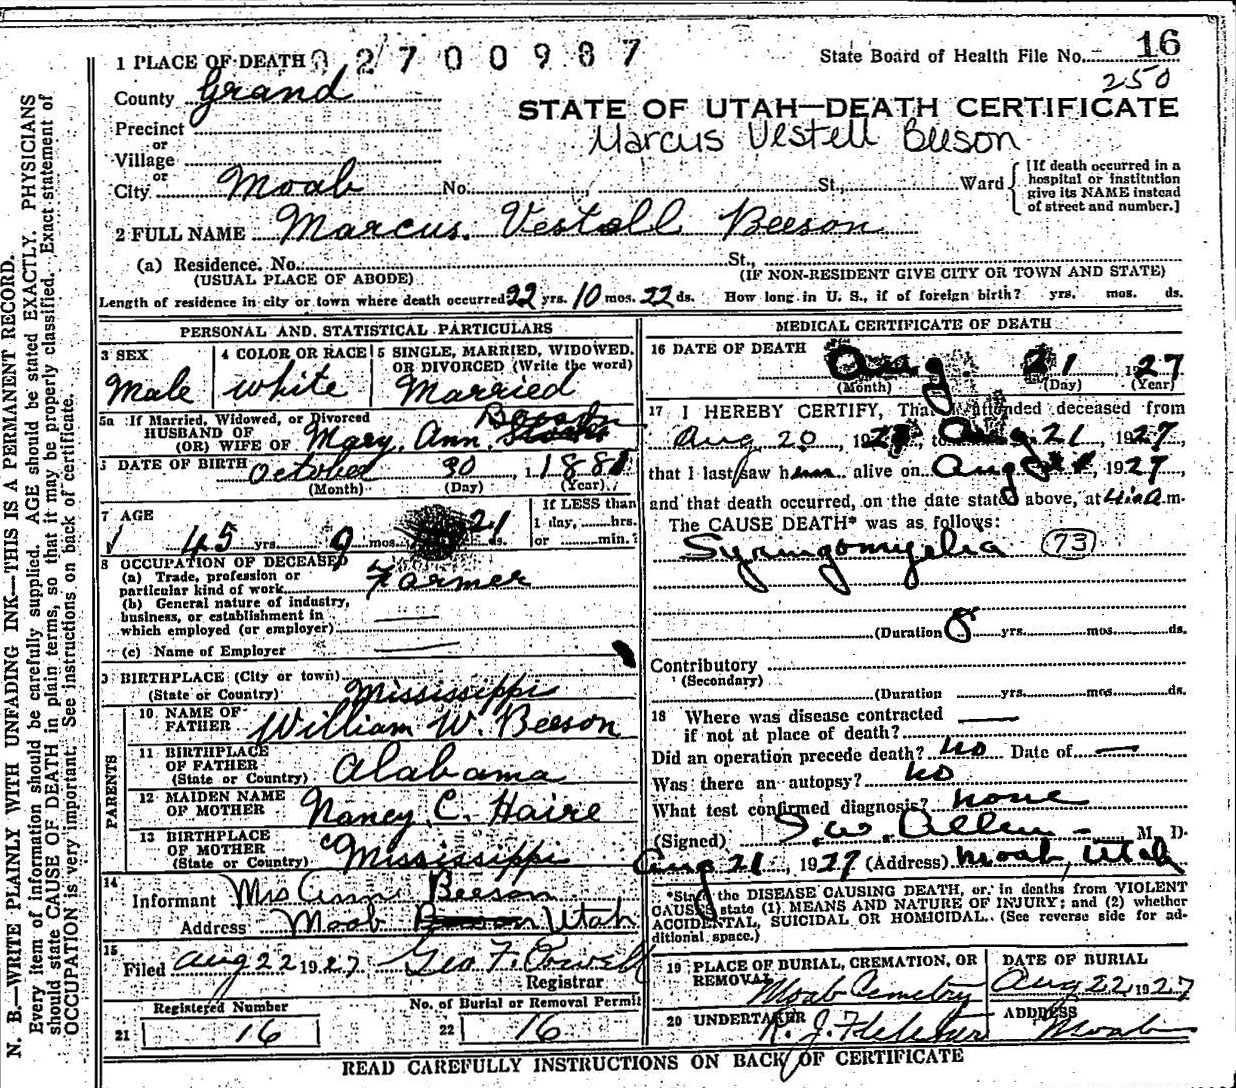 N. B.—WRITE PLAINLY WITH UNFADING INK—THIS IS A PERMANENT RECORD.
Every item of information should be carefully supplied. AGE should be stated EXACTLY. PHYSICIANS
should state CAUSE OF DEATH in plain terms, so that it may be properly classified. Exact statement of
OCCUPATION is very important. See instructions on back of certificate.
1 PLACE OF DEATH 2700987 State Board of Health File No. 16
250
County Grand
STATE OF UTAH—DEATH CERTIFICATE
Precinct
Marcus Vestell Beeson
or
Village
or
City Moab No. St., Ward
[If death occurred in a
hospital or institution
give its NAME instead
of street and number.]
2 FULL NAME Marcus Vestall Beeson
(a) Residence. No. St.,
(USUAL PLACE OF ABODE) (IF NON-RESIDENT GIVE CITY OR TOWN AND STATE)
Length of residence in city or town where death occurred 22 yrs. 10 mos. 22 ds. How long in U. S., if of foreign birth? yrs. mos. ds.
PERSONAL AND STATISTICAL PARTICULARS
3 SEX Male
4 COLOR OR RACE white
5 SINGLE, MARRIED, WIDOWED, OR DIVORCED (Write the word)
Married
5a If Married, Widowed, or Divorced
HUSBAND OF
(OR) WIFE OF Mary Ann
6 DATE OF BIRTH October 30 1881
(Month) (Day) (Year)
7 AGE 45 yrs. 9 mos. 21 ds.
If LESS than
1 day, hrs.
or min.?
8 OCCUPATION OF DECEASED
(a) Trade, profession or
particular kind of work Farmer
(b) General nature of industry,
business, or establishment in
which employed (or employer)
(c) Name of Employer
9 BIRTHPLACE (City or town)
(State or Country) Mississippi
PARENTS
10 NAME OF
FATHER William W. Beeson
11 BIRTHPLACE
OF FATHER
(State or Country) Alabama
12 MAIDEN NAME
OF MOTHER Nancy C. Haire
13 BIRTHPLACE
OF MOTHER
(State or Country) Mississippi
14
Informant Mrs Ann Beeson
Address Moab Utah
15
Filed Aug 22 1927 Geo F.
Registrar
Registered Number
21 16
No. of Burial or Removal Permit
22 16
MEDICAL CERTIFICATE OF DEATH
16 DATE OF DEATH
Aug 21 1927
(Month) (Day) (Year)
17 I HEREBY CERTIFY, That I attended deceased from
Aug 20, 1927 to Aug 21, 1927,
that I last saw him alive on Aug, 1927,
and that death occurred, on the date stated above, at m.
The CAUSE DEATH* was as follows:
Syringomyelia (73)
(Duration 8 yrs. mos. ds.
Contributory
(Secondary)
(Duration yrs. mos. ds.
18 Where was disease contracted —
if not at place of death?
Did an operation precede death? No Date of —
Was there an autopsy? No
What test confirmed diagnosis? none
(Signed) Allen M. D.
Aug 21, 1927 (Address) Moab, Utah
*State the DISEASE CAUSING DEATH, or, in deaths from VIOLENT
CAUSES state (1) MEANS AND NATURE OF INJURY; and (2) whether
ACCIDENTAL, SUICIDAL OR HOMICIDAL. (See reverse side for ad-
ditional space.)
19 PLACE OF BURIAL, CREMATION, OR
REMOVAL Moab Cemetery
DATE OF BURIAL
Aug 22, 1927
20 UNDERTAKER
ADDRESS
Moab
READ CAREFULLY INSTRUCTIONS ON BACK OF CERTIFICATE